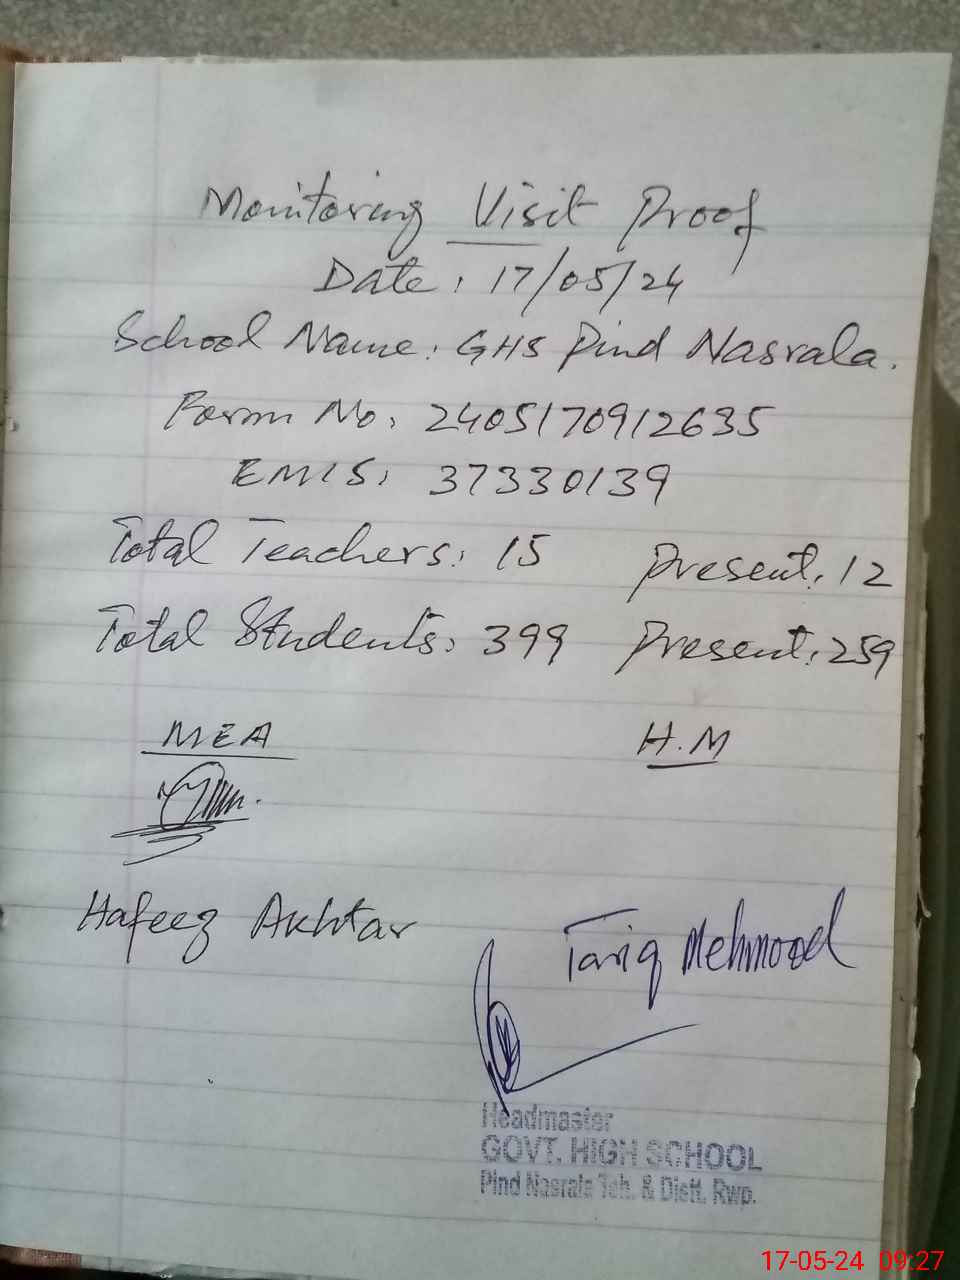 Monitoring Visit Proof
Date: 17/05/24
School Name: GHS Pind Nasrala.
Form No: 2405170912635
EMIS: 37330139
Total Teachers: 15 Present: 12
Total Students: 399 Present: 259
MEA H.M
Hafeez Akhtar
Tariq Mehmood
Headmaster
GOVT. HIGH SCHOOL
Pind Nasrala Teh. & Distt. Rwp.
17-05-24 09:27